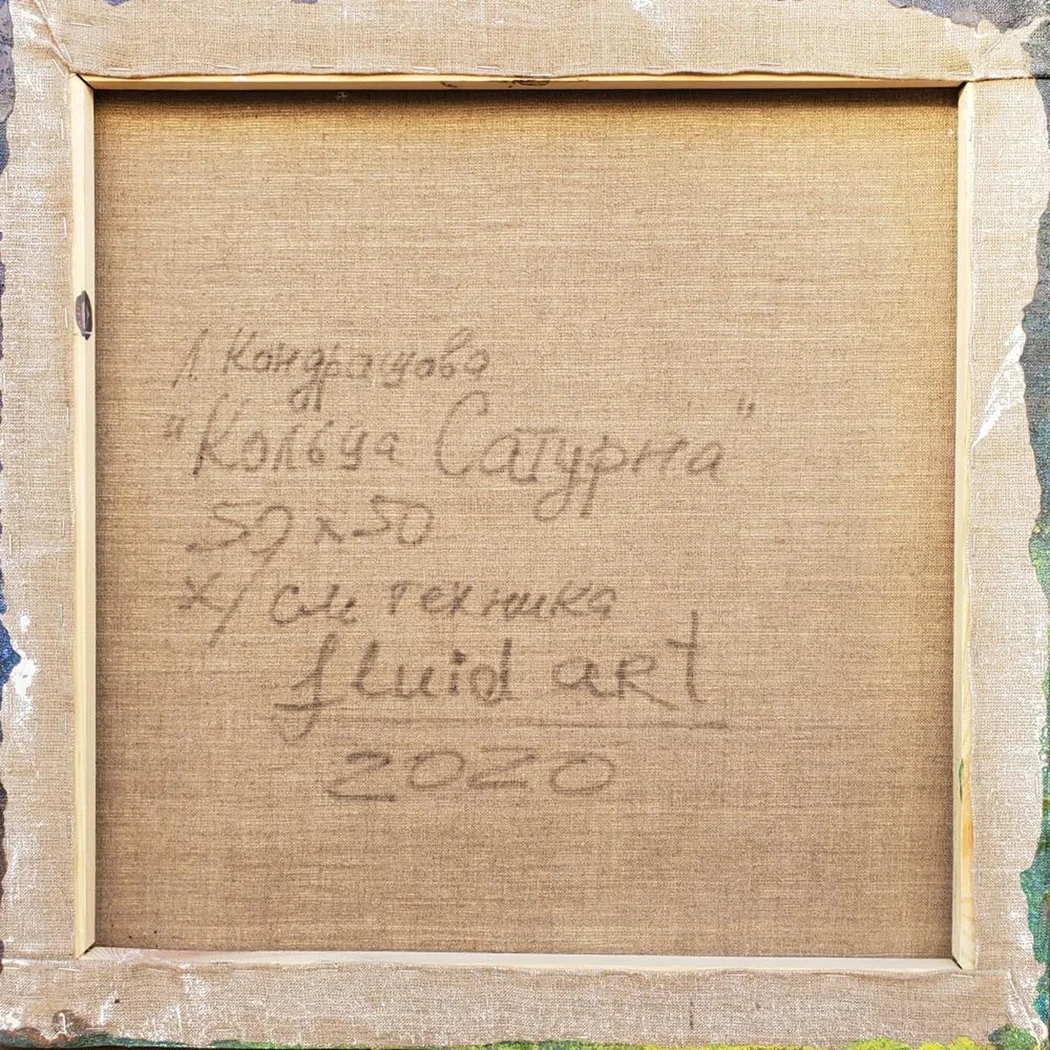 Л. Кондрашова
"Кольца Сатурна"
50 x 50
х/ см техника
fluid art
2020